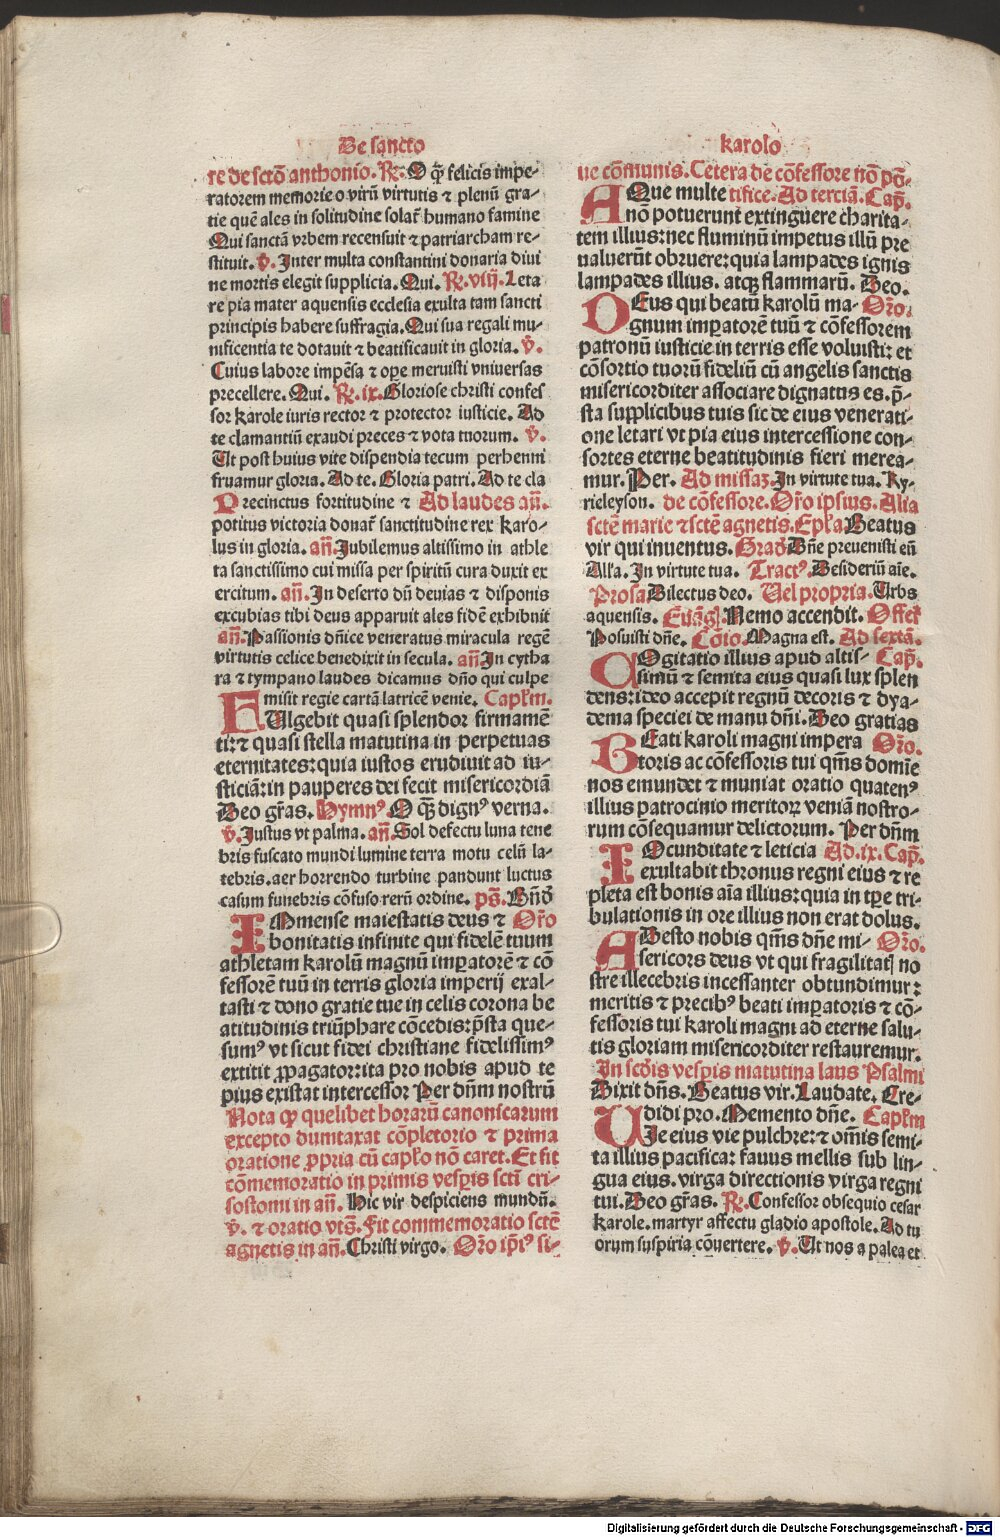 De sancto
re de sctō anthonio. R. O q̄ felicis impe-
ratorem memorie o virū virtutis ⁊ plenū gra-
tie quē ales in solitudine solat᷑ humano famine
Qui sanctā vrbem recensuit ⁊ patriarcham re-
stituit. v̄. Inter multa constantini donaria diui
ne mortis elegit supplicia. Qui. R. viij. Leta
re pia mater aquensis ecclesia exulta tam sancti
principis habere suffragia. Qui sua regali mu-
nificentia te dotauit ⁊ beatificauit in gloria. v̄.
Cuius labore impēsa ⁊ ope meruisti vniuersas
precellere. Qui. R. ix. Gloriose christi confes
sor karole iuris rector ⁊ protector iusticie. Ad
te clamantiū exaudi preces ⁊ vota tuorum. v̄.
Ut post huius vite dispendia tecum perhenni
fruamur gloria. Ad te. Gloria patri. Ad te cla
Precinctus fortitudine ⁊ Ad laudes añ.
potitus victoria donat᷑ sanctitudine rex karo-
lus in gloria. añ. Jubilemus altissimo in athle
ta sanctissimo cui missa per spiritū cura duxit ex
ercitum. añ. In deserto dū deuias ⁊ disponis
excubias tibi deus apparuit ales fidē exhibuit
añ. Passionis dn̄ice veneratus miracula regē
virtutis celice benedixit in secula. añ In cytha
ra ⁊ tympano laudes dicamus dn̄o qui culpe
misit regie cartā latricē venie. Capl̄m.
FUlgebit quasi splendor firmamē
ti: ⁊ quasi stella matutina in perpetuas
eternitates: quia iustos erudiuit ad iu-
sticiā: in pauperes dei fecit misericordiā
Deo gr̄as. Hymnꝰ O q̄ dignꝰ verna.
v̄. Justus vt palma. añ. Sol defectu luna tene
bris fuscato mundi lumine terra motu celū la-
tebris. aer horrendo turbine pandunt luctus
casum funebris cōfuso rerū ordine. ps̄. Bn̄d
IMmense maiestatis deus ⁊ Oro
bonitatis infinite qui fidelē tuum
athletam karolū magnū impatorē ⁊ cō
fessorē tuū in terris gloria imperij exal-
tasti ⁊ dono gratie tue in celis corona be
atitudinis triūphare cōcedis: p̄sta que-
sumꝰ vt sicut fidei christiane fidelissimꝰ
extitit ꝓpagator: ita pro nobis apud te
pius existat intercessor Per dn̄m nostrū
Nota ꝙ quelibet horarū canonicarum
excepto dumtaxat cōpletorio ⁊ prima
oratione ꝓpria cū capl̄o nō caret. Et fit
cōmemoratio in primis vesꝑis sctī cri-
sostomi in añ. Hic vir despiciens mundū.
v̄. ⁊ oratio vts̄. Fit commemoratio sctē
agnetis in añ. Christi virgo. Oro ip̄iꝰ si-
karolo
ue cōmunis. Cetera de cōfessore nō pō-
AQue multe tifice. Ad terciā. Cap̄.
nō potuerunt extinguere charita-
tem illius: nec fluminū impetus illū pre
ualuerūt obruere: quia lampades ignis
lampades illius. atqꝫ flammarū. Deo.
DEus qui beatū karolū ma- Oro.
gnum impatorē tuū ⁊ cōfessorem
patronū iusticie in terris esse voluisti: et
cōsortio tuorū fideliū cū angelis sanctis
misericorditer associare dignatus es. p̄-
sta supplicibus tuis sic de eius venerati-
one letari vt pia eius intercessione con-
sortes eterne beatitudinis fieri merea-
mur. Per. Ad missaꝫ. In virtute tua. Ky-
rieleyson. de cōfessore. Oro ipsius. Alia
sctē marie ⁊ sctē agnetis. Epl̄a. Beatus
vir qui inuentus. Grad̄ Dn̄e preuenisti eū
All'a. In virtute tua. Tractꝰ. Desideriū aīe.
Prosa Dilectus deo. Uel propria. Urbs
aquensis. Euāgl. Nemo accendit. Offer̄
Posuisti dn̄e. Cōio. Magna est. Ad sextā.
COgitatio illius apud altis- Cap̄.
simū ⁊ semita eius quasi lux splen
dens: ideo accepit regnū decoris ⁊ dya-
dema speciei de manu dn̄i. Deo gratias
BEati karoli magni impera Oro.
toris ac cōfessoris tui qm̄s domīe
nos emundet ⁊ muniat oratio quatenꝰ
illius patrocinio meritoꝝ veniā nostro-
rum cōsequamur delictorum. Per dn̄m
IOcunditate ⁊ leticia Ad. ix. Cap̄.
exultabit thronus regni eius ⁊ re
pleta est bonis aīa illius: quia in tꝑe tri-
bulationis in ore illius non erat dolus.
ADesto nobis qm̄s dn̄e mi- Oro.
sericors deus vt qui fragilitatꝭ no
stre illecebris incessanter obtundimur:
meritis ⁊ precibꝰ beati impatoris ⁊ cō-
fessoris tui karoli magni ad eterne salu-
tis gloriam misericorditer restauremur.
In scd̄is vesꝑis matutina laus Psalmi
Dixit dn̄s. Beatus vir. Laudate. Cre-
didi pro. Memento dn̄e. Capl̄m
UIe eius vie pulchre: ⁊ om̄is semi-
ta illius pacifica: fauus mellis sub lin-
gua eius. virga directionis virga regni
tui. Deo gr̄as. R. Confessor obsequio cesar
karole. martyr affectu gladio apostole. Ad tu
orum suspiria cōuertere. v̄. Ut nos a palea et
Digitalisierung gefördert durch die Deutsche Forschungsgemeinschaft - DFG